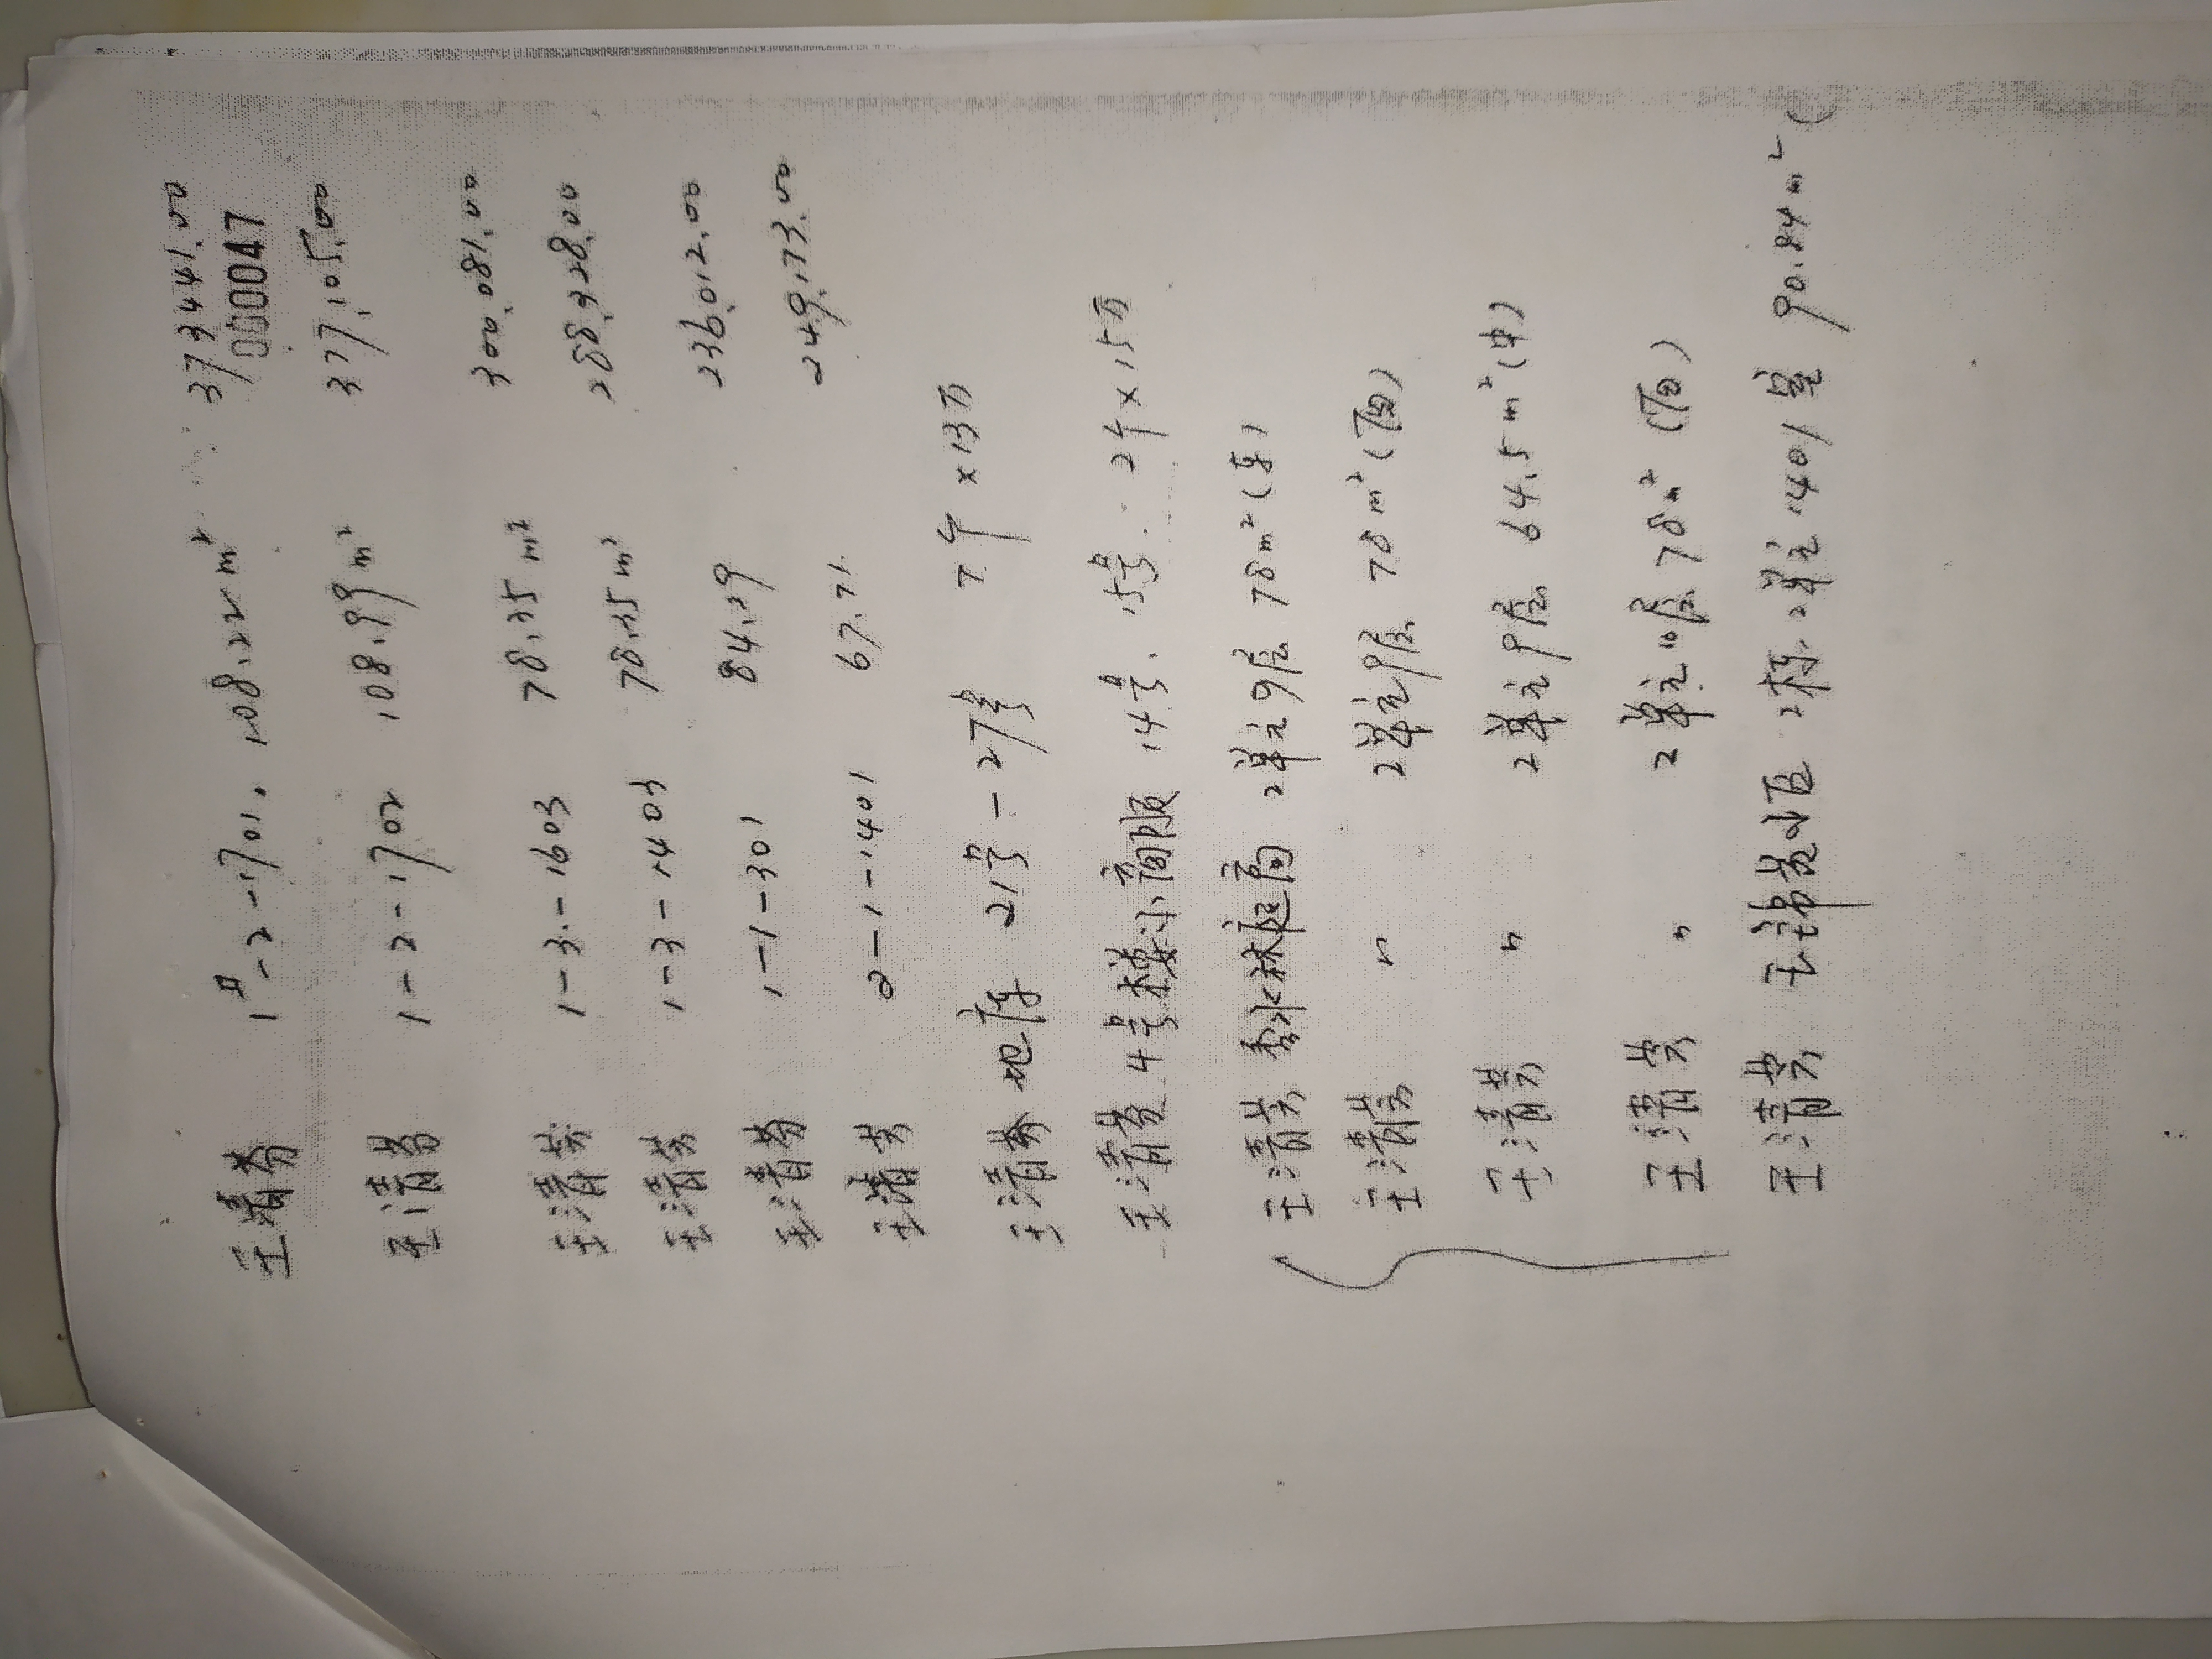 王清芬 1#-2-1701. 108.22m² 373441.00
000047
王清芬 1-2-1702 108.99m² 377,105.00
王清芬 1-3-1603 78.35m² 300,081.00
王清芬 1-3-1403 78.35m² 288,328.00
王清芬 1-1-301 84.29 236,012.00
王清芬 2-1-1401 67.71 249,173.00
王清芬 地库 21号-27号 7个×13万
王清芬 4号楼小商服 14号、15号 2个×15万
王清芬 秀水林庭高 2单元9层 78m²(东)
王清芬 〃 2单元9层 78m²(西)
王清芬 〃 2单元9层 64.5m²(中)
王清芬 〃 2单元10层 78m²(西)
王清芬 小区 2栋2单元1401室 90.84m²(